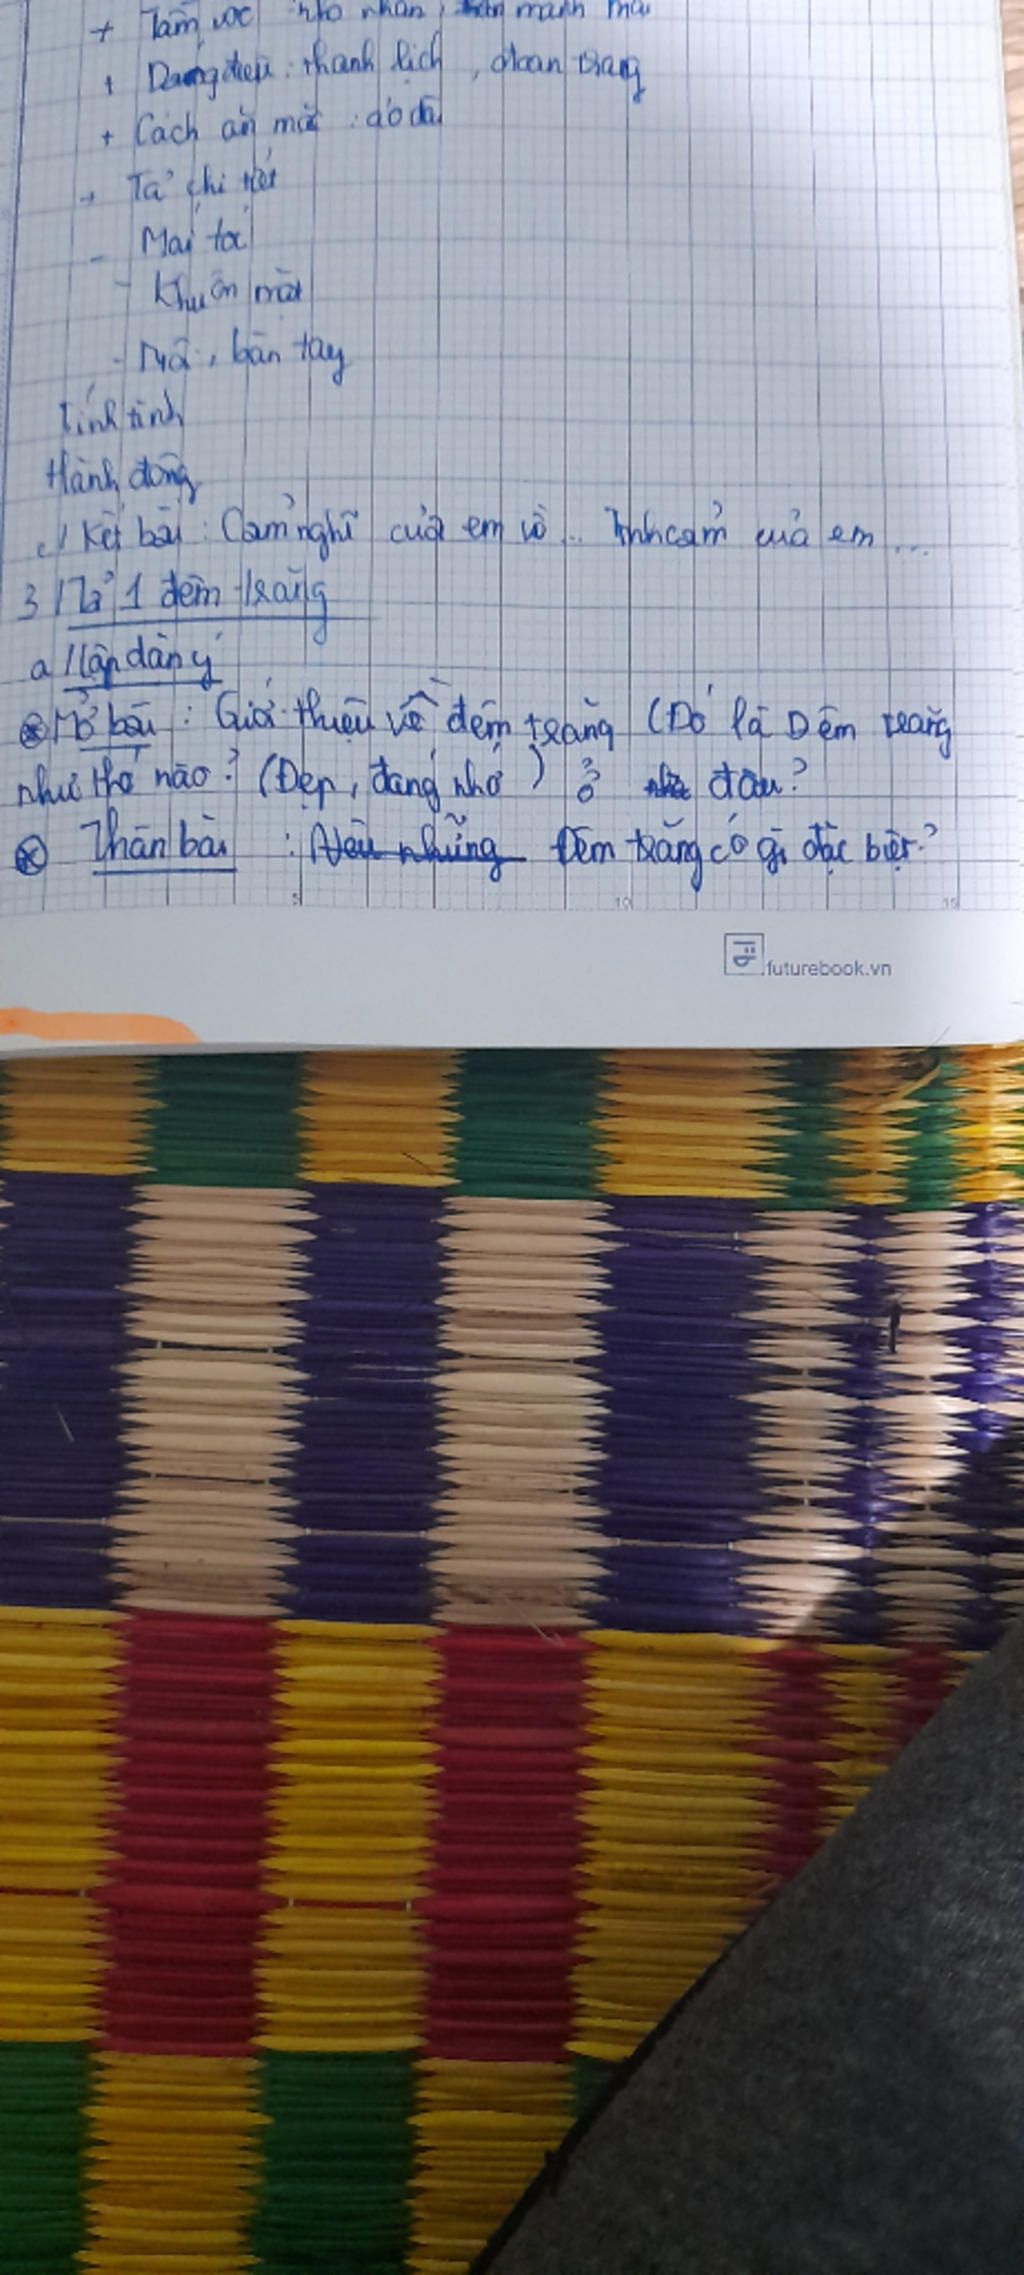 + Tầm vóc nhỏ nhắn, mảnh mai
+ Dáng điệu : thanh lịch, đoan trang
+ Cách ăn mặc : áo dài
+ Tả chi tiết
- Mái tóc
- Khuôn mặt
- bàn tay
Tính tình
Hành động
c/ Kết bài : Cảm nghĩ của em về ... Tình cảm của em ...
3 / Tả 1 đêm trăng
a / Lập dàn ý
* Mở bài : Giới thiệu về đêm trăng (Đó là Đêm trăng
như thế nào ? (Đẹp, đáng nhớ) ở đâu ?
* Thân bài : Nêu những Đêm trăng có gì đặc biệt ?
5 10 15
futurebook.vn